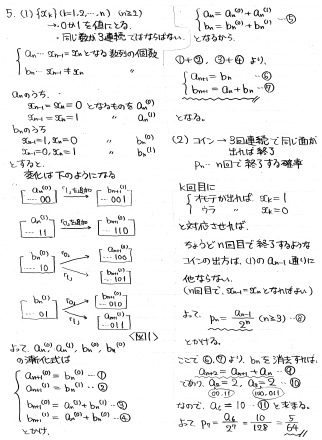 5. (1) {xk} (k=1,2,…,n) (n≧2)
→ 0か1を値にとる。
・同じ数が3連続ではならない。
an … xn-1=xnとなる数列の個数
bn … xn-1≠xn 〃
anのうち、
xn-1=xn=0 となるものを an(0)
xn-1=xn=1 〃 an(1)
bnのうち
xn-1=1, xn=0 〃 bn(0)
xn-1=0, xn=1 〃 bn(1)
とすると、
変化は下のようになる
an(0) …00 → bn+1(1) …001
an(1) …11 → bn+1(0) …110
bn(0) …10 → an+1(0) …100
bn+1(1) …101
bn(1) …01 → bn+1(0) …010
an+1(1) …011
<図1>
よって、an(0), an(1), bn(0), bn(1)
の漸化式は
an+1(0) = bn(0) …①
an+1(1) = bn(1) …②
bn+1(0) = an(1) + bn(1) …③
bn+1(1) = an(0) + bn(0) …④
とかけ、
an = an(0) + an(1)
bn = bn(0) + bn(1) …⑤
となるから、
①+②, ③+④ より、
an+1 = bn …⑥
bn+1 = an + bn …⑦
となる。
(2) コイン → 3回連続で同じ面が
出れば終了
pn … n回で終了する確率
k回目に
オモテが出れば xk=1
ウラ 〃 xk=0
と対応させれば、
ちょうどn回目で終了するような
コインの出方は、(1)の an-1 通りに
他ならない。
(n回目で、xn-1=xnとなればよい)
よって pn = an-1/2^n (n≧3) …⑧
とかける。
ここで⑥,⑦より、bnを消去すれば、
an+2 = an+1 + an …⑨
であり、a2=2, a3=2 …⑩
(00,11) (100,011)
なので、a6=10 …⑪ と求まる。
よって p7 = a6/2^7 = 10/128 = 5/64